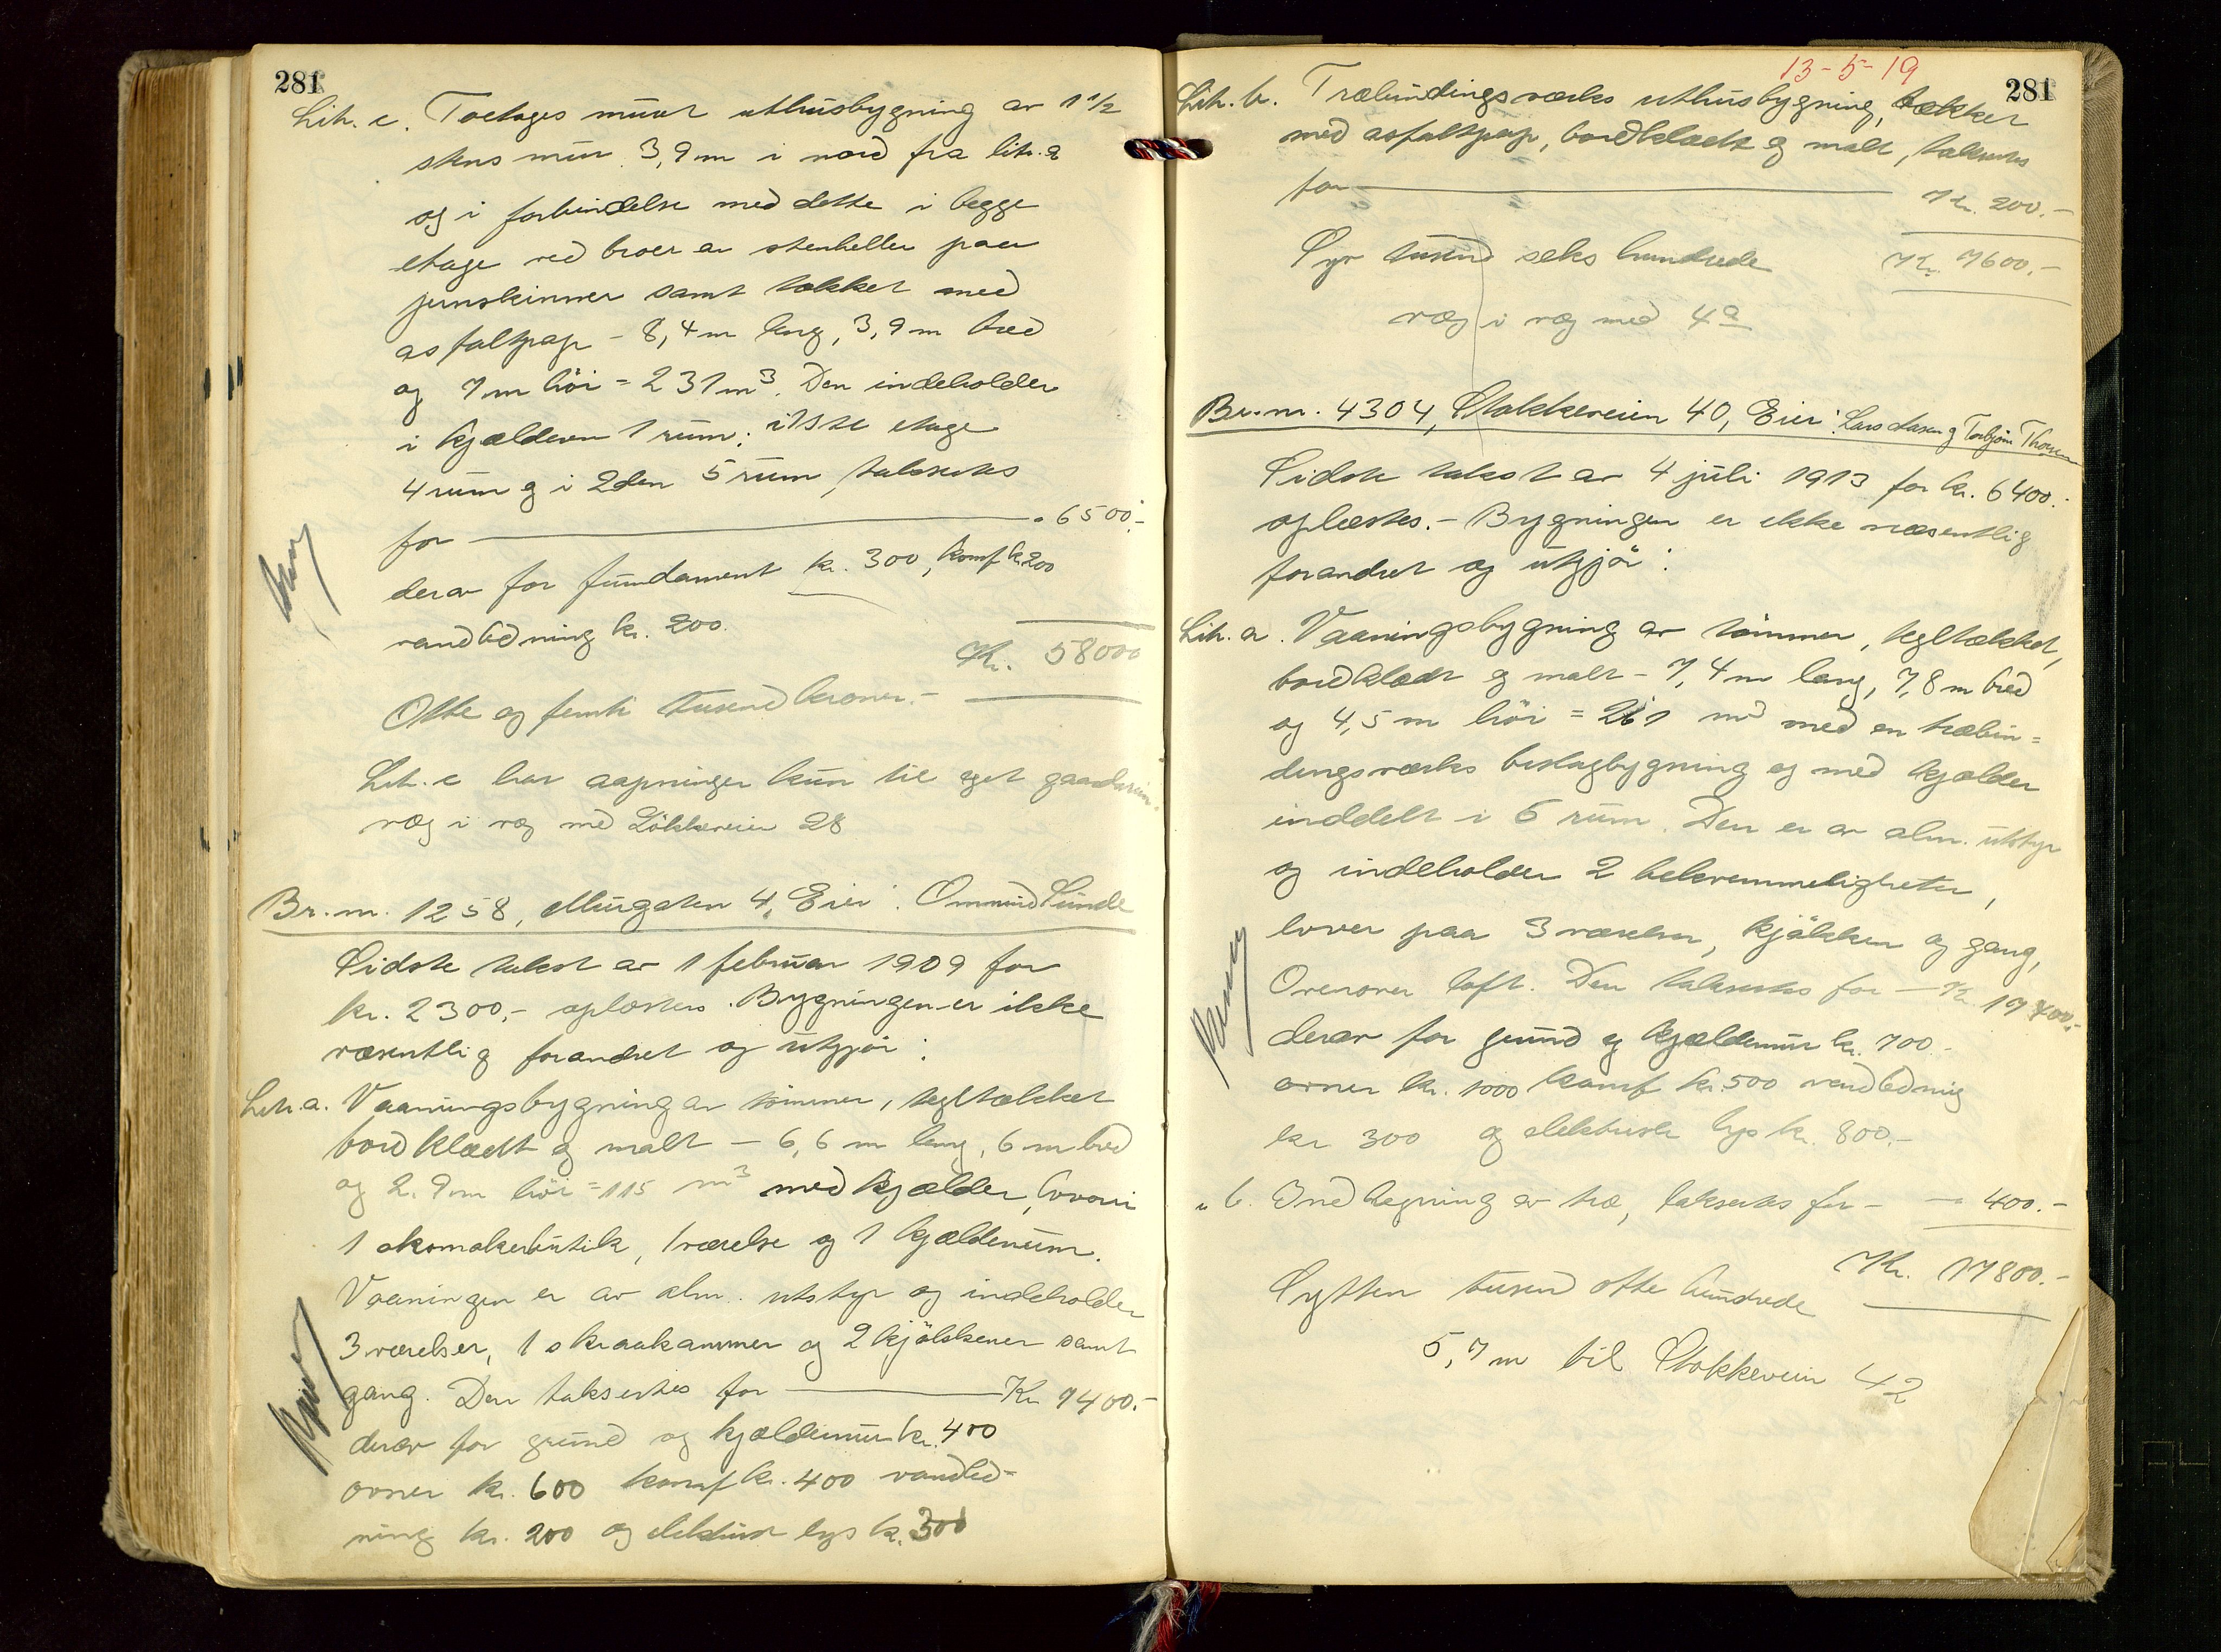 281
Litr. c. Toetages muret uthusbygning av 1 1/2
stens mur 3,9 m i nord fra litr. a
og i forbindelse med dette i begge
etage ved broer av stenheller paa
jernskinner samt tækket med
asfaltpap - 8,4 m lang, 3,9 m bred
og 7 m höi = 231 m³. Den indeholder
i kjælderen 1 rum; i 1ste etage
4 rum og i 2den 5 rum, takseres
for - " 6500.-
derav for fundament kr. 300, komf kr 200
vandledning kr. 200.
Kr. 58000
Otte og femti tusend kroner.-
Litr. c har aapninger kun til eget gaardsrum.
væg i væg med Lökkeveien 28
Br. nr. 1258, Murgaten 4, Eier: Ommund Lunde
Sidste takst av 1 februar 1909 for
kr. 2300,- oplæstes. Bygningen er ikke
væsentlig forandret og utgjör:
Litr. a. Vaaningsbygning av tömmer, tegltækket
bordklædt og malt - 6,6 m lang, 6 m bred
og 2,9 m höi = 115 m³ med kjælder, hvori
1 skomakerbutik, 1 værelse og 1 kjælderrum.
Vaaningen er av alm. utstyr og indeholder
3 værelser, 1 skraakammer og 2 kjökkener samt
gang. Den takseres for - Kr 7400.-
derav for grund og kjældermur kr. 400
ovner kr. 600 komf kr. 400 vandled-
ning kr. 200 og elektrisk lys kr. 300
13-5-19
281
Litr. b. Træbindingsværks uthusbygning, tækket
med asfaltpap, bordklædt og malt, takseres
for - Kr. 200.-
Syv tusend seks hundrede Kr. 7600.-
væg i væg med 4a
Br. nr. 4304, Stokkeveien 40, Eier: Lars Aasen og Torbjörn Thorsen
Sidste takst av 4 juli 1913 for kr. 6400.-
oplæstes. - Bygningen er ikke væsentlig
forandret og utgjör:
Litr. a. Vaaningsbygning av tömmer, tegltækket,
bordklædt og malt - 7,4 m lang, 7,8 m bred
og 4,5 m höi = 261 m³ med en træbin=
dingsværks beslagbygning og med kjælder
inddelt i 5 rum. Den er av alm. utstyr
og indeholder 2 bekvemmeligheter,
hver paa 3 værelser, kjökken og gang,
Ovenover loft. Den takseres for - Kr. 17400.-
derav for grund og kjældermur kr. 700.-
ovner kr. 1000 komf kr. 500 vandledning
kr 300 og elektrisk lys kr. 800.-
" b. Indhegning av træ, takseres for - - " 400.-
Kr. 17800.-
Sytten tusend otte hundrede
5,7 m til Stokkeveien 42